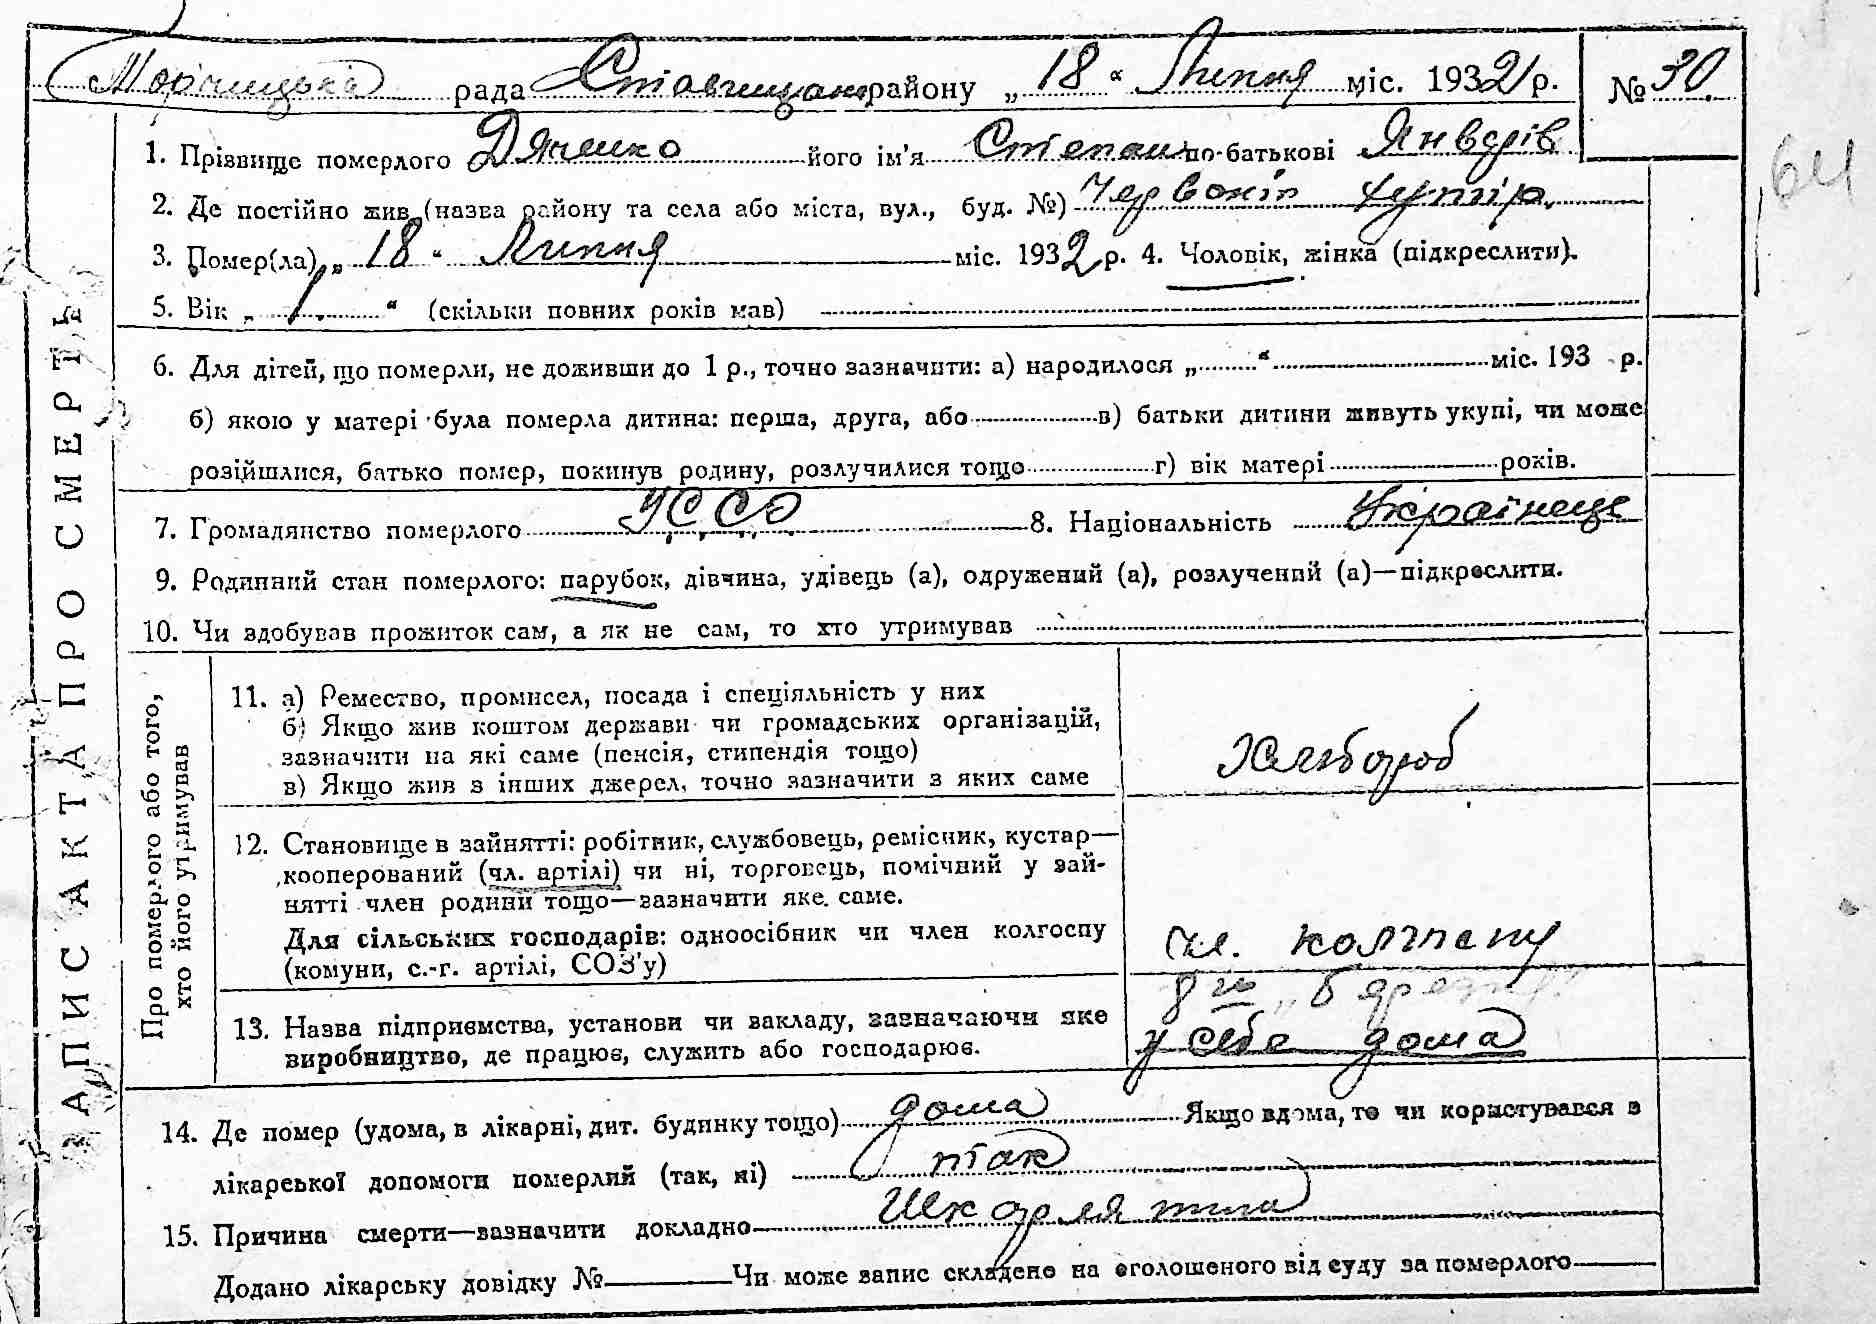 рада Ставищан району „18“ Липня міс. 1932 р. № 30
64
1. Прізвище померлого Дяченко його ім'я Степан по-батькові
2. Де постійно жив (назва району та села або міста, вул., буд. №) Червоний хутір
3. Помер(ла) „18“ Липня міс. 1932 р. 4. Чоловік, жінка (підкреслити).
5. Вік „1“ (скільки повних років мав)
6. Для дітей, що померли, не доживши до 1 р., точно зазначити: а) народилося „ “ міс. 193 р.
б) якою у матері була померла дитина: перша, друга, або в) батьки дитини живуть укупі, чи може
розійшлися, батько помер, покинув родину, розлучилися тощо г) вік матері років.
7. Громадянство померлого УССР 8. Національність Українець
9. Родинний стан померлого: парубок, дівчина, удівець (а), одружений (а), розлучений (а)—підкреслити.
10. Чи здобував прожиток сам, а як не сам, то хто утримував
ЗАПИС АКТА ПРО СМЕРТЬ
Про померлого або того, хто його утримував
11. а) Ремество, промисел, посада і спеціяльність у них
б) Якщо жив коштом держави чи громадських організацій,
зазначити на які саме (пенсія, стипендія тощо)
в) Якщо жив з інших джерел, точно зазначити з яких саме
Хлібороб
12. Становище в зайнятті: робітник, службовець, ремісник, кустар—
кооперований (чл. артілі) чи ні, торговець, помічний у зай-
нятті член родини тощо—зазначити яке саме.
Для сільських господарів: одноосібник чи член колгоспу
(комуни, с.-г. артілі, СОЗ'у)
чл. колгоспу
13. Назва підприємства, установи чи закладу, зазначаючи яке
виробництво, де працює, служить або господарює.
у себе дома
14. Де помер (удома, в лікарні, дит. будинку тощо) дома Якщо вдома, то чи користувався з
лікарської допомоги померлий (так, ні) так
15. Причина смерти—зазначити докладно Шкарлятина
Додано лікарську довідку № Чи може запис складено на оголошеного від суду за померлого